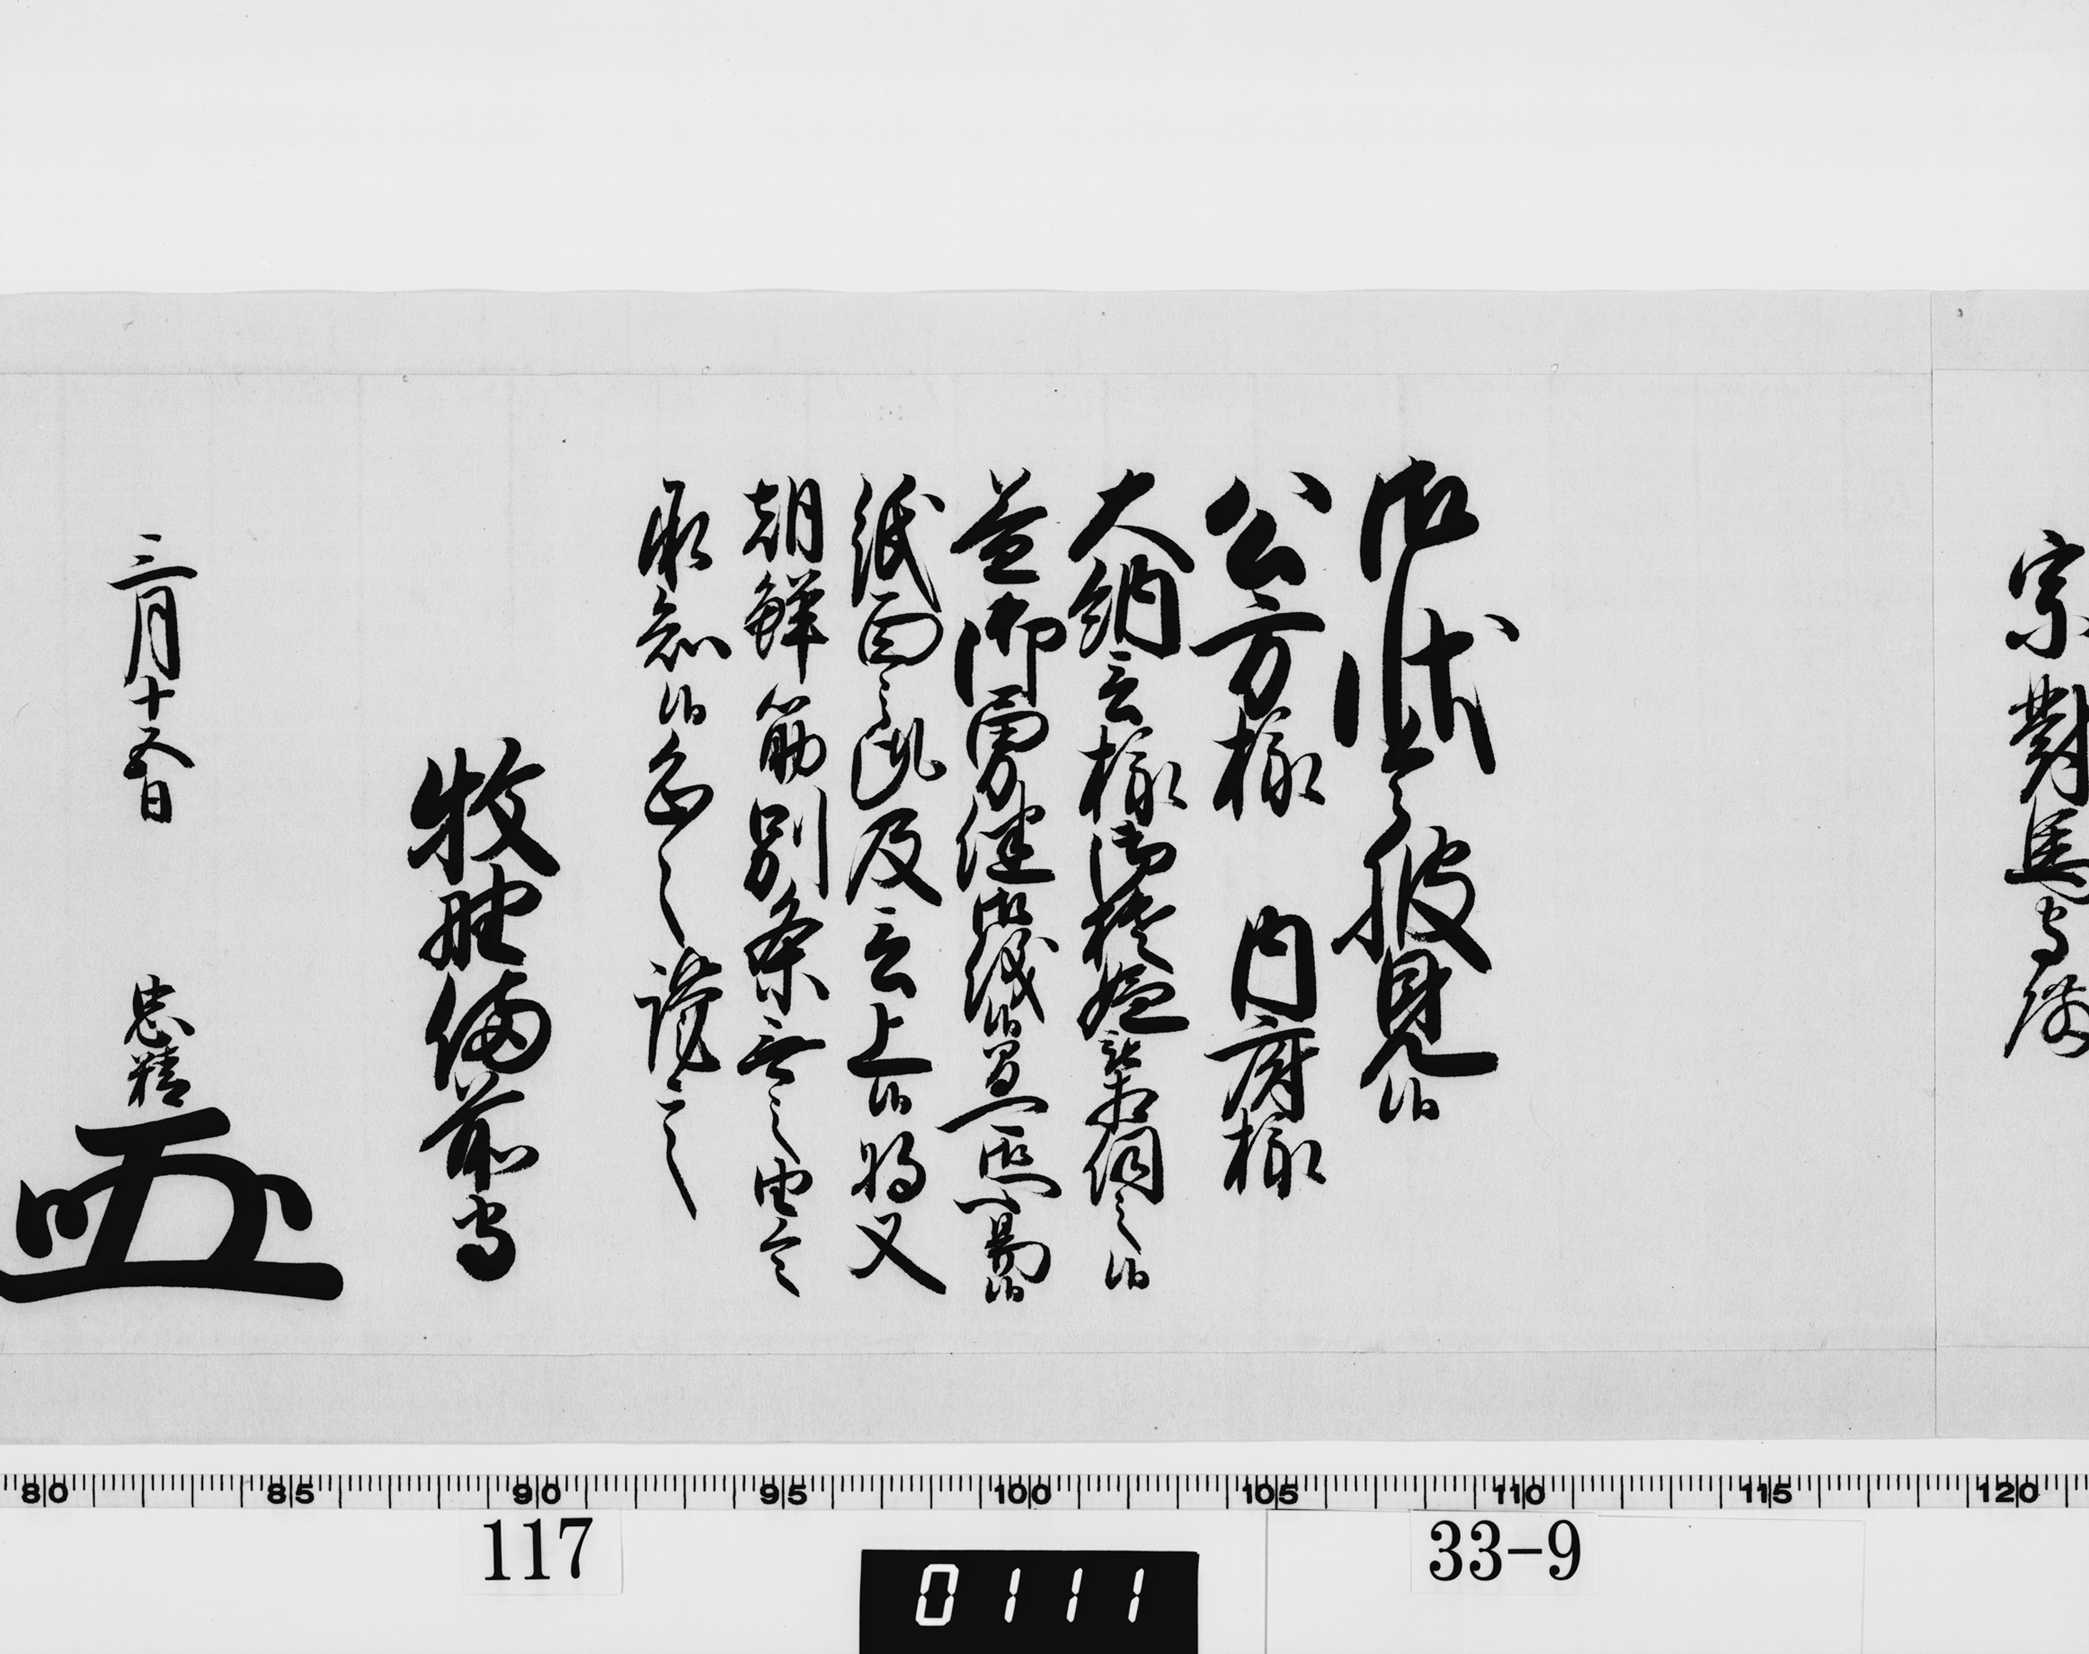 宗對馬守殿
御状令披見候
公方様 内府様
大納言様御機嫌被相伺之候
益御勇健御儀候間可御心易候
紙面之趣及言上候将又
朝鮮筋別条無之由令
承知候恐々謹言
牧野備前守
三月十五日 忠精
80 85 90 95 100 105 110 115 120
117
33-9
0111